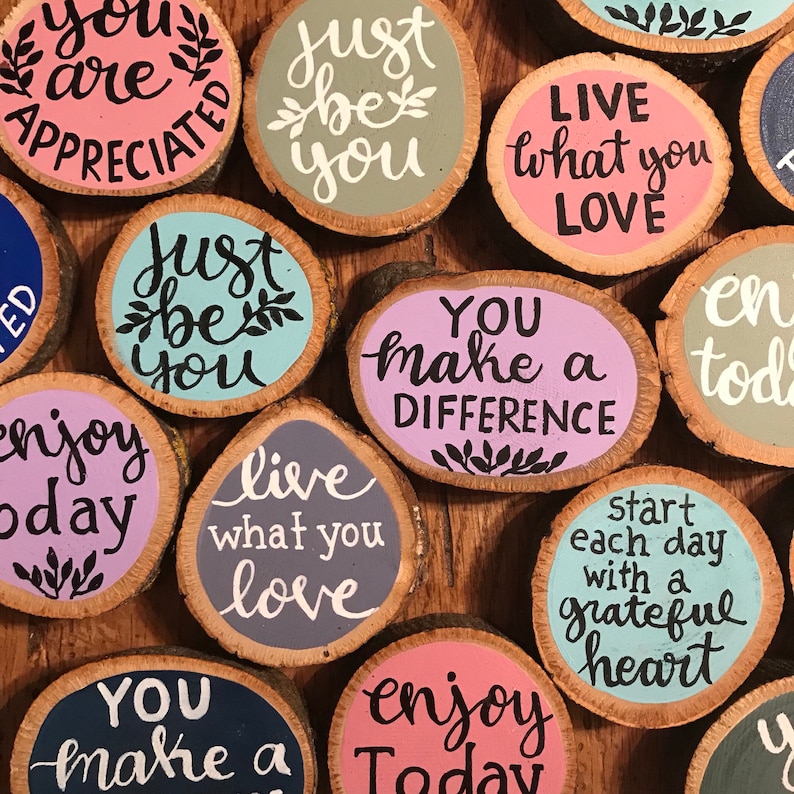 you
are
APPRECIATED
just
be
you
LIVE
what you
LOVE
just
be
you
YOU
make a
DIFFERENCE
enjoy
today
live
what you
love
start
each day
with a
grateful
heart
YOU
make a
enjoy
Today